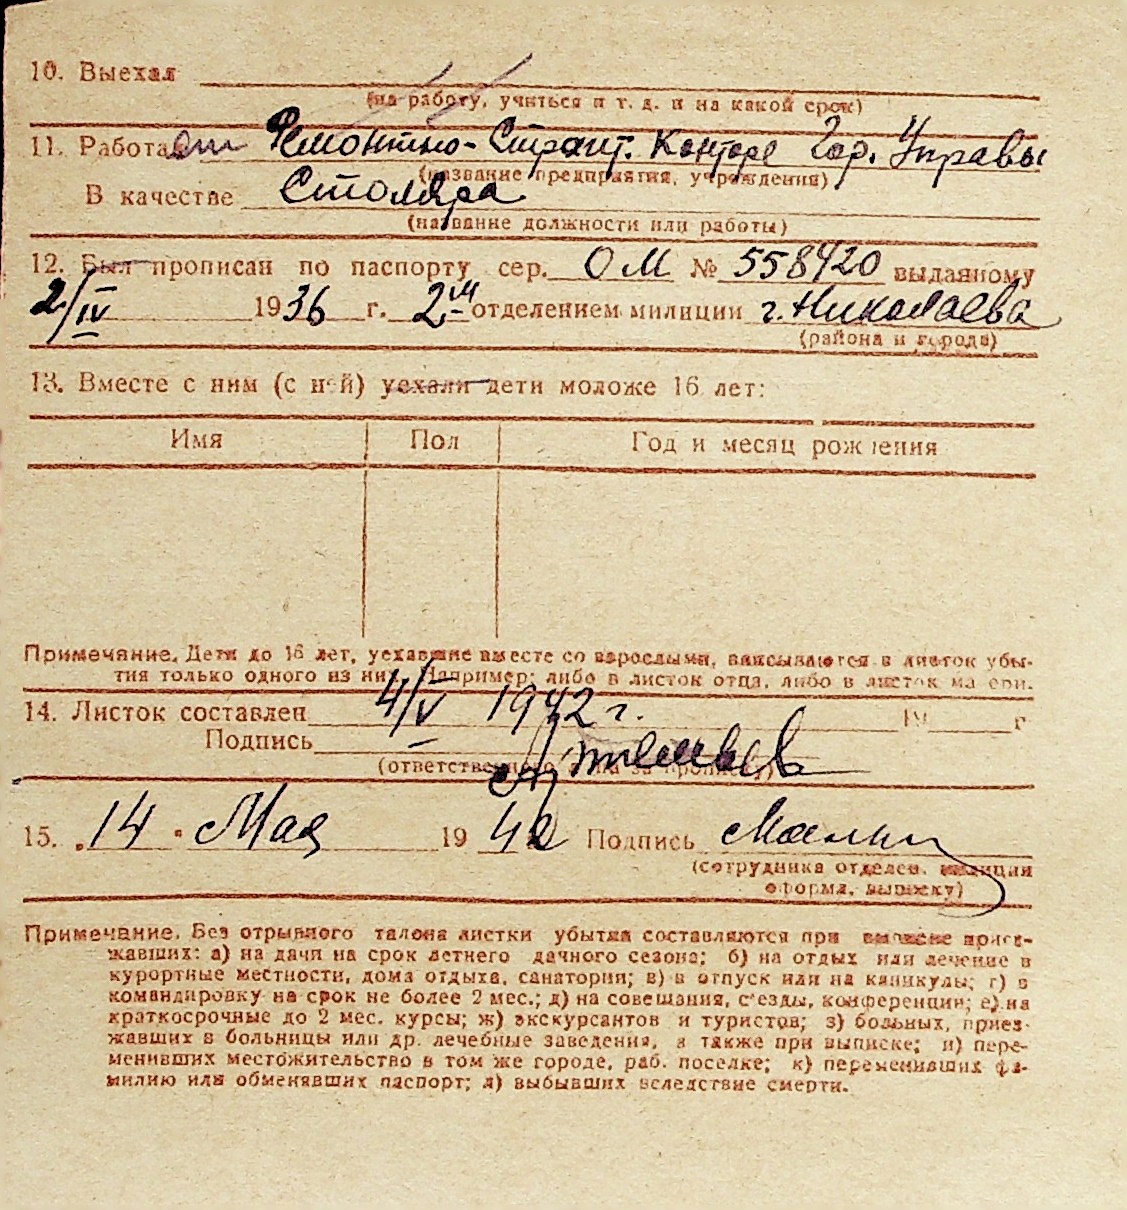 10. Выехал
(на работу, учиться и т. д. и на какой срок)
11. Работает Ремонтно-Строит. Конторе Гор. Управы
(название предприятия, учреждения)
В качестве Столяра
(название должности или работы)
12. Был прописан по паспорту сер. ОМ № 558420 выданному
2/IV 1936 г. 2-м отделением милиции г. Николаева
(района и города)
13. Вместе с ним (с ней) уехали дети моложе 16 лет:
Имя Пол Год и месяц рождения
Примечание. Дети до 16 лет, уехавшие вместе со взрослыми, вписываются в листок убы-
тия только одного из них. Например: либо в листок отца, либо в листок матери.
14. Листок составлен 4/V 1942 г. 19 г
Подпись
(ответственного лица за прописку)
15. „14" Мая 1942 Подпись
(сотрудника отделен. милиции
оформл. выписку)
Примечание. Без отрывного талона листки убытия составляются при выписке приез-
жавших: а) на дачи на срок летнего дачного сезона; б) на отдых или лечение в
курортные местности, дома отдыха, санатории; в) в отпуск или на каникулы; г) в
командировку на срок не более 2 мес.; д) на совещания, с'езды, конференции; е) на
краткосрочные до 2 мес. курсы; ж) экскурсантов и туристов; з) больных, приез-
жавших в больницы или др. лечебные заведения, а также при выписке; и) пере-
менивших местожительство в том же городе, раб. поселке; к) переменивших фа-
милию или обменявших паспорт; л) выбывших вследствие смерти.